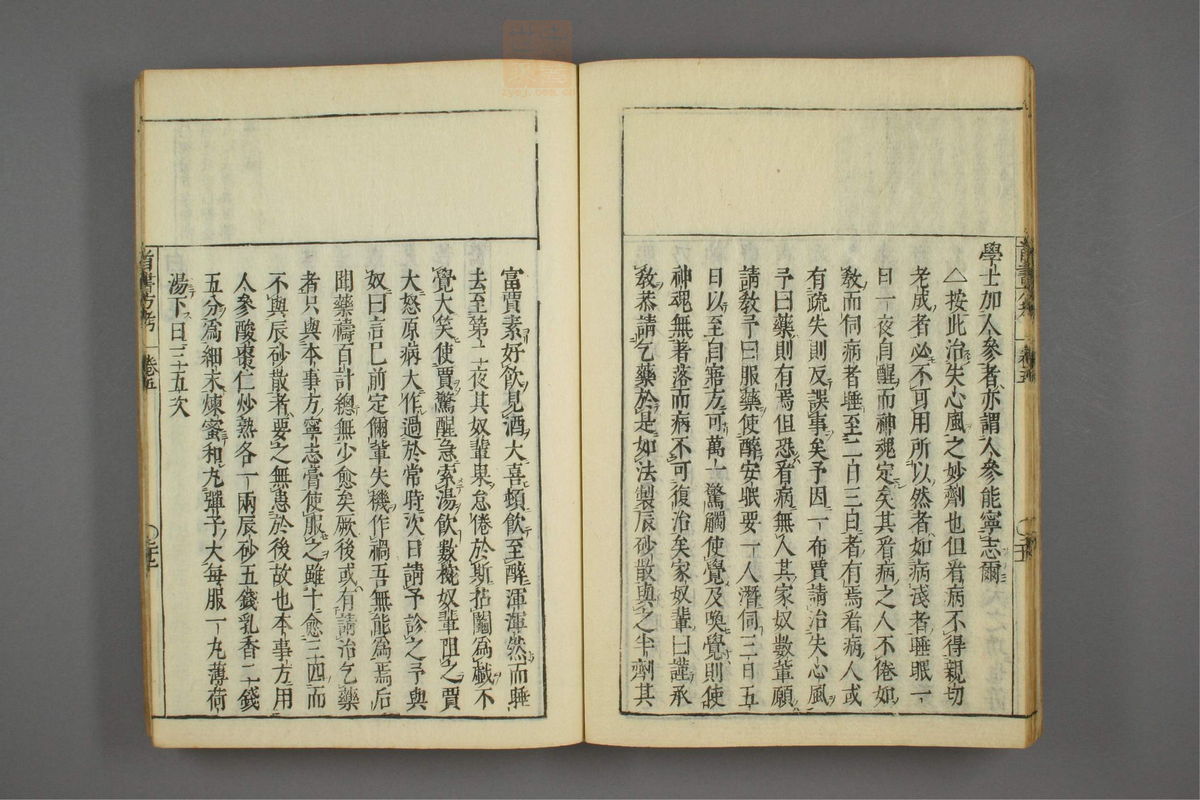 學士加人參者亦謂人參能寧志爾
△按此治失心風之妙劑也但看病不得親切
老成者必不可用所以然者如病淺者睡眠一
日一夜自醒而神魂定矣其看病之人不倦如
教而伺病者睡至二日三日者有焉看病人或
有疏失則反誤事矣予因一布賈請治失心風
予曰藥則有焉但恐看病無人其家奴數輩願
請教予曰服藥使醉安眠要一人潛伺三日五
日以至自寤方可萬一驚觸使覺及喚覺則使
神魂無著落而病不可復治矣家奴輩曰謹承
敎恭請乞藥於是如法製辰砂散與之半劑其
富賈素好飲見酒大喜頓飲至醉渾渾然而睡
去至第二夜其奴輩果怠倦於斯拈鬮爲戲不
覺大笑使賈驚醒急索湯飲數椀奴輩阻之賈
大怒原病大作過於常時次日請予診之予與
奴曰言已前定倆輩失機作禍吾無能爲焉后
聞藥禱百計總無少愈矣厥後或有請治乞藥
者只與本事方寧志膏使服之雖十愈三四而
不與辰砂散者要之無患於後故也本事方用
人參酸棗仁炒熟各一兩辰砂五錢乳香二錢
五分爲細末煉蜜和丸彈子大每服一丸薄荷
湯下日三五次
首書方考
卷五